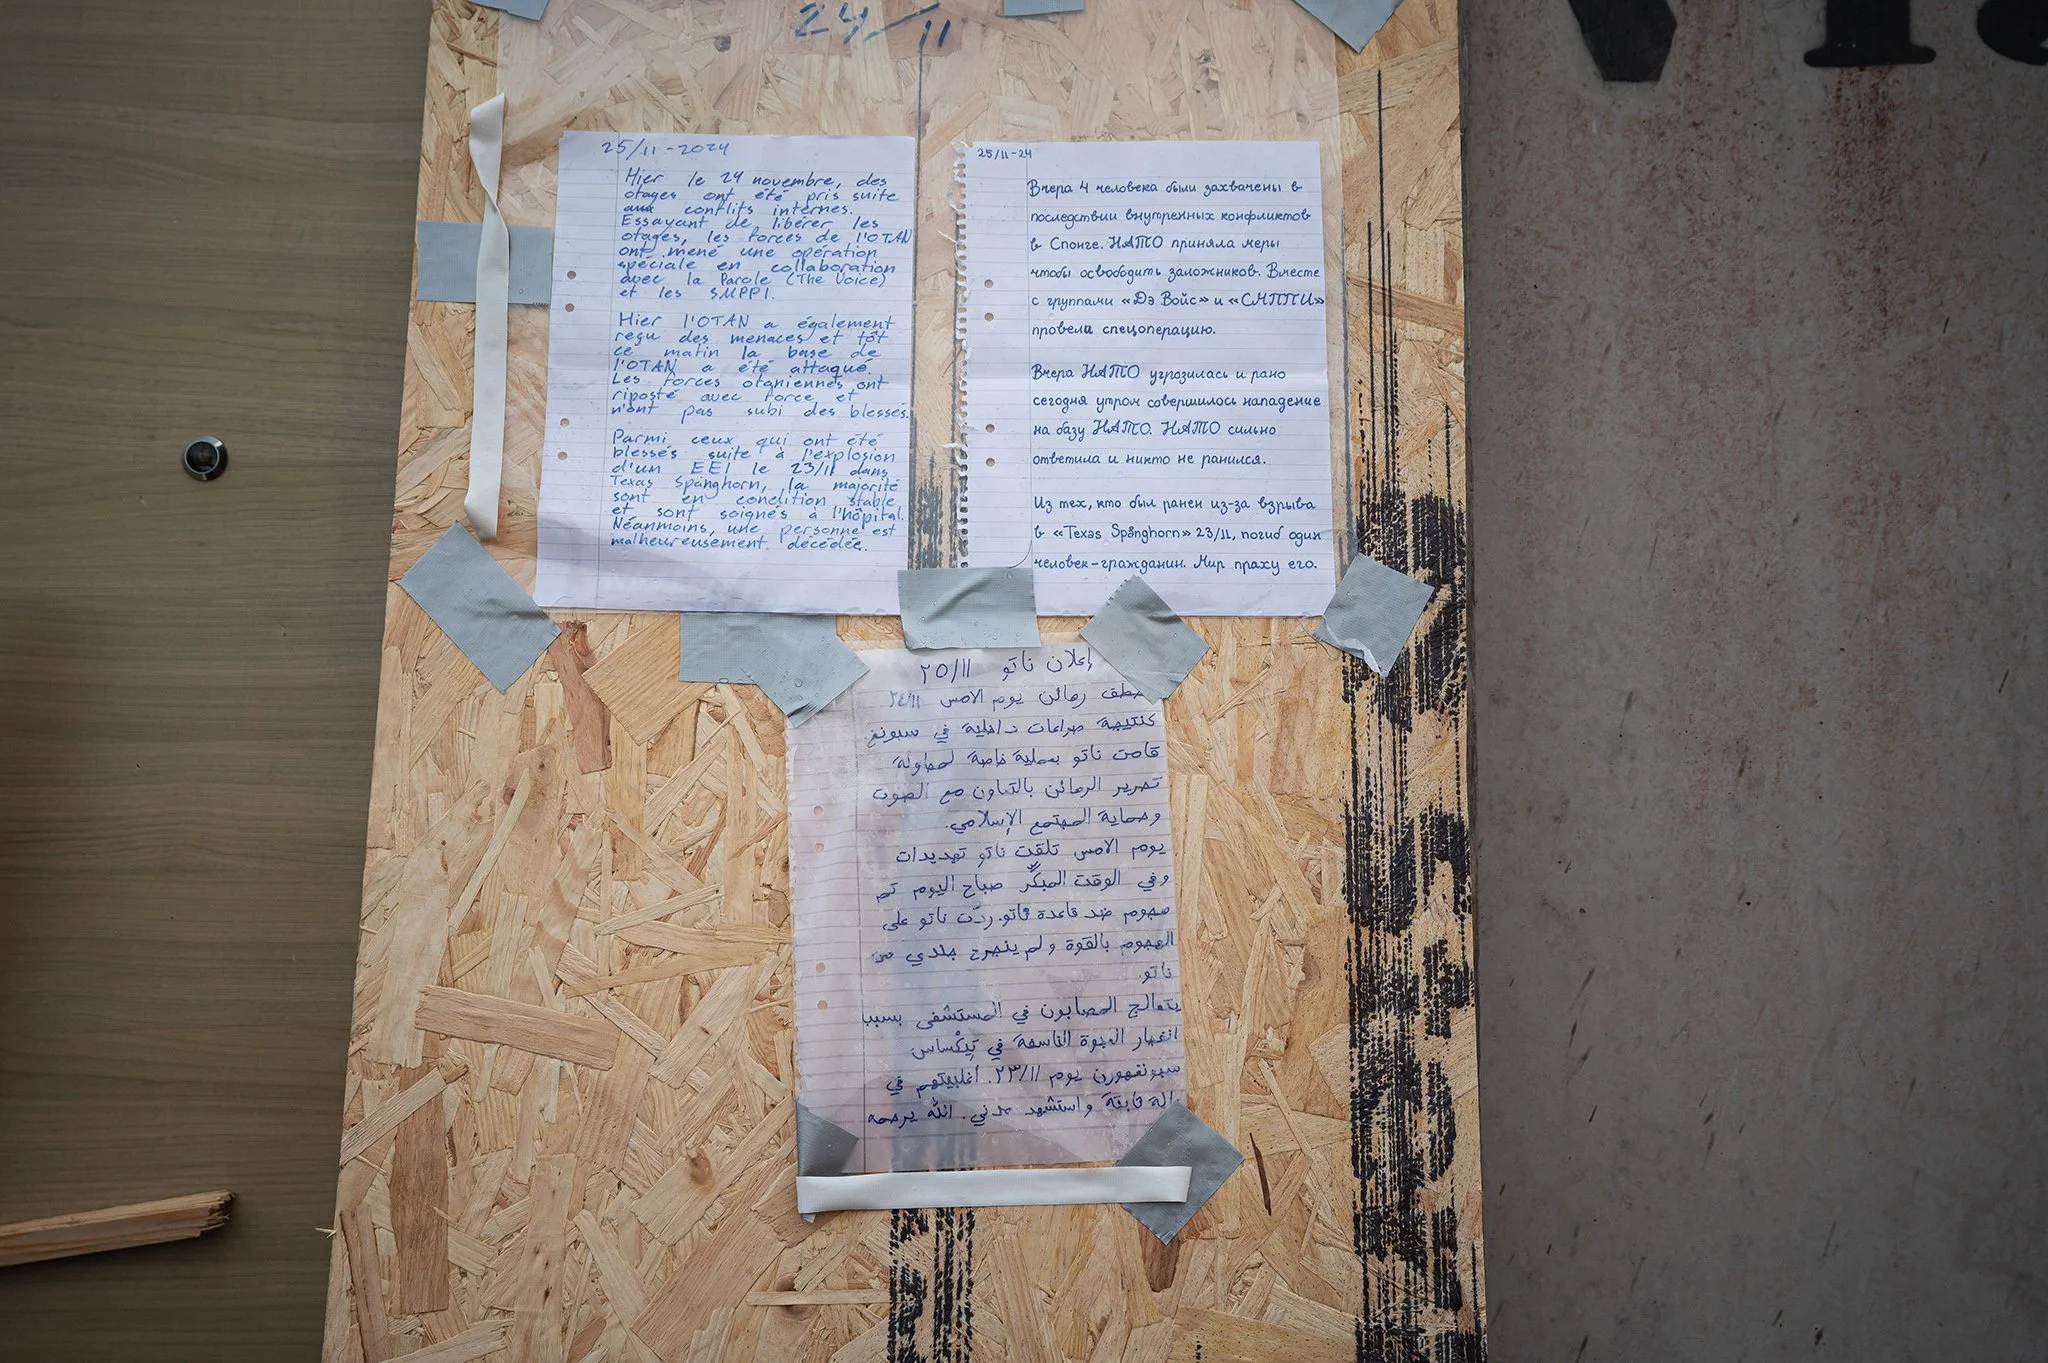 24/11
25/11-2024
Hier le 24 novembre, des
otages ont été pris suite
aux conflits internes.
Essayant de libérer les
otages, les forces de l'OTAN
ont mené une opération
spéciale en collaboration
avec la Parole (The Voice)
et les SMPPI.
Hier l'OTAN a également
reçu des menaces et tôt
ce matin la base de
l'OTAN a été attaqué.
Les forces otaniennes ont
riposté avec force et
n'ont pas subi des blessés.
Parmi ceux qui ont été
blessés suite à l'explosion
d'un EEI le 23/11 dans
Texas Spånghorn, la majorité
sont en condition stable
et sont soignés à l'hôpital.
Néanmoins, une personne est
malheureusement décédée.
25/11-24
Вчера 4 человека были захвачены в
последствии внутренных конфликтов
в Спонге. НАТО приняла меры
чтобы освободить заложников. Вместе
с группами «Дэ Войс» и «СМППИ»
провела спецоперацию.
Вчера НАТО угрозилась и рано
сегодня утром совершилось нападение
на базу НАТО. НАТО сильно
ответила и никто не ранился.
Из тех, кто был ранен из-за взрыва
в «Texas Spånghorn» 23/11, погиб один
человек-гражданин. Мир праху его.
إعلان ناتو ٢٥/١١
رهائن يوم الامس ٢٤/١١
كنتيجة صراعات داخلية في سبونغ.
قامت ناتو بعملية خاصة لمحاولة
تحرير الرهائن بالتعاون مع الصوت
وحماية المجتمع الإسلامي.
يوم الامس تلقت ناتو تهديدات
وفي الوقت المبكّر صباح اليوم تم
هجوم ضد قاعدة ناتو. ردّت ناتو على
الهجوم بالقوة ولم ينجرح جندي من
ناتو.
يتعالج المصابون في المستشفى بسبب
انفجار العبوة الناسفة في تِكْساس
سبونغهورن يوم ٢٣/١١. أغلبيتهم في
ثابتة واستشهد مدني. الله يرحمه